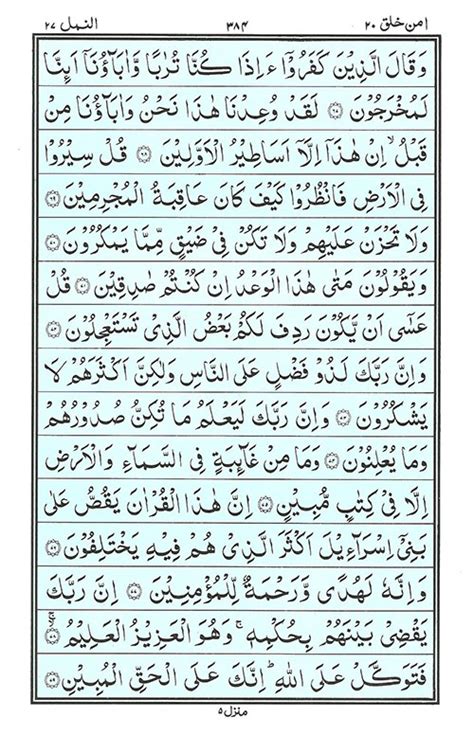 امن خلق ٢٠ ٣٨٤ النمل ٢٧
وَقَالَ الَّذِيْنَ كَفَرُوْۤا ءَاِذَا كُنَّا تُرٰبًا وَّاٰبَآؤُنَاۤ اَىِٕنَّا
لَمُخْرَجُوْنَ ۝ لَقَدْ وُعِدْنَا هٰذَا نَحْنُ وَاٰبَآؤُنَا مِنْ
قَبْلُ ۙ اِنْ هٰذَاۤ اِلَّاۤ اَسَاطِيْرُ الْاَوَّلِيْنَ ۝ قُلْ سِيْرُوْا
فِى الْاَرْضِ فَانْظُرُوْا كَيْفَ كَانَ عَاقِبَةُ الْمُجْرِمِيْنَ ۝
وَلَا تَحْزَنْ عَلَيْهِمْ وَلَا تَكُنْ فِىْ ضَيْقٍ مِّمَّا يَمْكُرُوْنَ ۝
وَيَقُوْلُوْنَ مَتٰى هٰذَا الْوَعْدُ اِنْ كُنْتُمْ صٰدِقِيْنَ ۝ قُلْ
عَسٰۤى اَنْ يَّكُوْنَ رَدِفَ لَكُمْ بَعْضُ الَّذِىْ تَسْتَعْجِلُوْنَ ۝
وَاِنَّ رَبَّكَ لَذُوْ فَضْلٍ عَلَى النَّاسِ وَلٰكِنَّ اَكْثَرَهُمْ لَا
يَشْكُرُوْنَ ۝ وَاِنَّ رَبَّكَ لَيَعْلَمُ مَا تُكِنُّ صُدُوْرُهُمْ
وَمَا يُعْلِنُوْنَ ۝ وَمَا مِنْ غَآىِٕبَةٍ فِى السَّمَآءِ وَالْاَرْضِ
اِلَّا فِىْ كِتٰبٍ مُّبِيْنٍ ۝ اِنَّ هٰذَا الْقُرْاٰنَ يَقُصُّ عَلٰى
بَنِىْۤ اِسْرَآءِيْلَ اَكْثَرَ الَّذِىْ هُمْ فِيْهِ يَخْتَلِفُوْنَ ۝
وَاِنَّهٗ لَهُدًى وَّرَحْمَةٌ لِّلْمُؤْمِنِيْنَ ۝ اِنَّ رَبَّكَ
يَقْضِىْ بَيْنَهُمْ بِحُكْمِهٖ ۚ وَهُوَ الْعَزِيْزُ الْعَلِيْمُ ۝
فَتَوَكَّلْ عَلَى اللّٰهِ ؕ اِنَّكَ عَلَى الْحَقِّ الْمُبِيْنِ ۝
منزل ٥